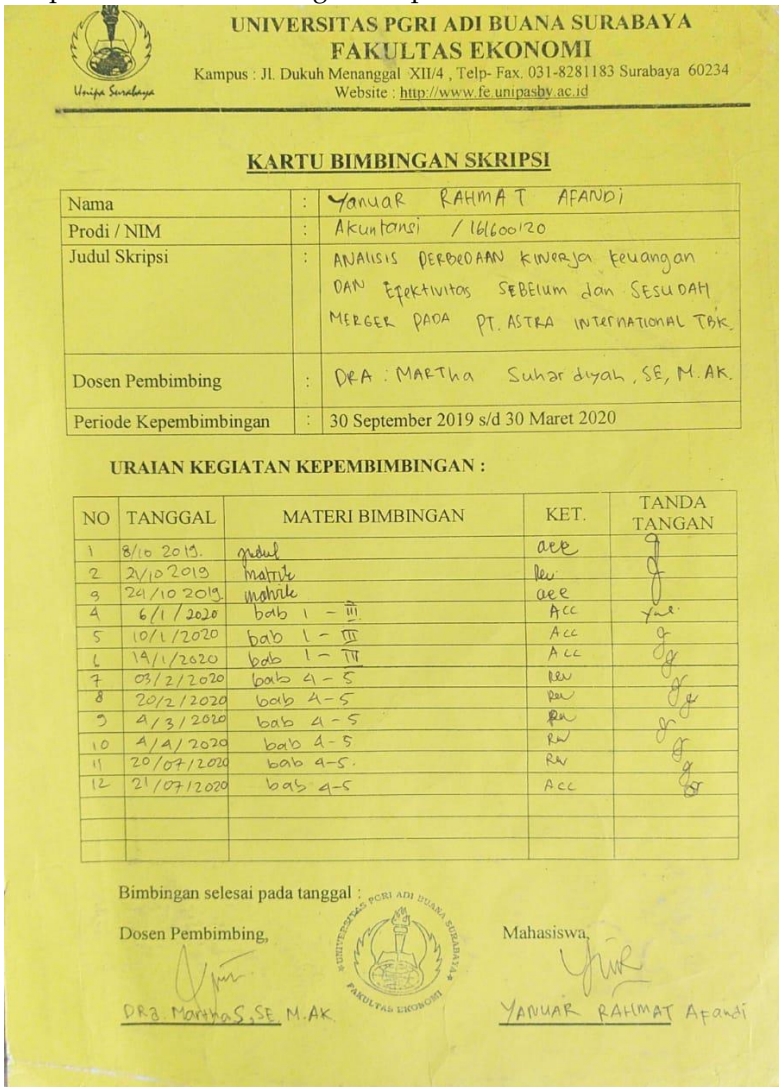 UNIVERSITAS PGRI ADI BUANA SURABAYA
FAKULTAS EKONOMI
Kampus : Jl. Dukuh Menanggal XII/4 , Telp- Fax. 031-8281183 Surabaya 60234
Website : http://www.fe.unipasby.ac.id
Unipa Surabaya
KARTU BIMBINGAN SKRIPSI
Nama : Yanuar RAHMAT AFANDi
Prodi / NIM : Akuntansi / 161600120
Judul Skripsi : ANALISIS PERBEDAAN KINERJA keuangan
DAN Efektivitas SEBElum dan SESUDAH
MERGER PADA PT. ASTRA INTERNATIONAL TBK.
Dosen Pembimbing : DRA . MARTha Suhardiyah, SE, M.AK.
Periode Kepembimbingan : 30 September 2019 s/d 30 Maret 2020
URAIAN KEGIATAN KEPEMBIMBINGAN :
NO TANGGAL MATERI BIMBINGAN KET. TANDA TANGAN
1 8/10 2019. judul acc
2 21/10 2019 matrik Rev
3 24/10 2019 matrik acc
4 6/1/2020 bab 1 - III Acc
5 10/1/2020 bab 1 - III Acc
6 14/1/2020 bab 1 - Acc
7 03/2/2020 bab 4 - 5 Rev
8 20/2/2020 bab 4-5 Rev
9 4/3/2020 bab 4 - 5 Rev
10 4/4/2020 bab 4-5 Rev
11 20/07/2020 bab 4-5. Rev
12 21/07/2020 bab 4-5 Acc
Bimbingan selesai pada tanggal :
UNIVERSITAS PGRI ADI BUANA SURABAYA
FAKULTAS EKONOMI
Dosen Pembimbing, Mahasiswa,
DRa. Martha S, SE M.AK YANUAR RAHMAT AFandi